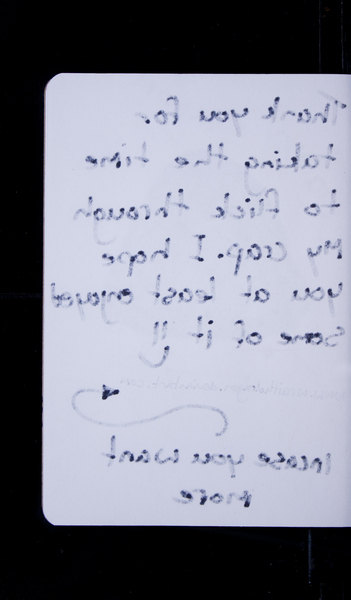 Thank you for
taking the time
to flick through
my crap. I hope
you at least enjoyed
some of it !!
Incase you want
more